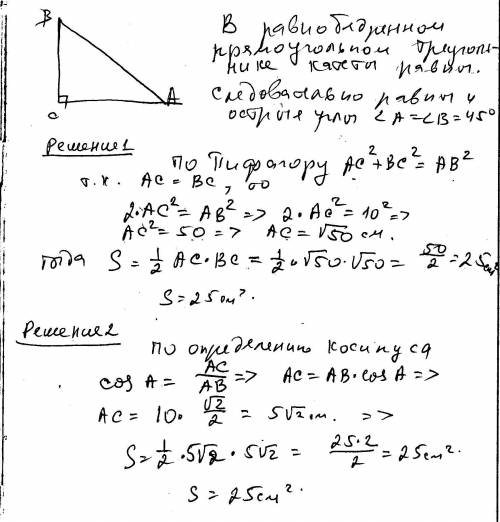 B
C
A
В равнобедренном
прямоугольном треуголь-
нике катеты равны.
Следовательно равны и
острые углы ∠A=∠B=45°
Решение 1
по Пифагору AC²+BC²=AB²
т.к. AC=BC, то
2·AC²=AB² => 2·AC²=10² =>
AC²=50 => AC=√50 см.
тогда S=1/2 AC·BC=1/2·√50·√50=50/2=25см²
S=25см².
Решение 2
по определению косинуса
cos A=AC/AB => AC=AB·cos A =>
AC=10·√2/2=5√2 см. =>
S=1/2·5√2·5√2=25·2/2=25см².
S=25см².